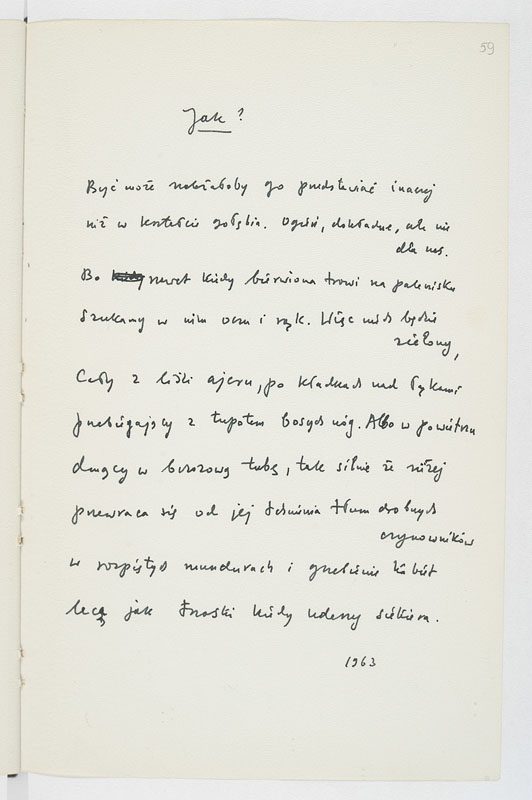 59
Jak?
Być może należałoby go przedstawiać inaczej
niż w kształcie gołębia. Ogień, dokładnie, ale nie
dla nas.
Bo nawet kiedy bierwiona trawi na palenisku
Szukamy w nim oczu i rąk. Więc niech będzie
zielony,
Cały z liści ajeru, po kładkach nad łąkami
przebiegający z tupotem bosych nóg. Albo w powietrzu
dmący w brzozową tubę, tak silnie że niżej
przewraca się od jej tchnienia tłum drobnych
czynowników
w rozpiętych mundurach i grzebienie kobiet
lecą jak trzaski kiedy uderzy siekiera.
1963